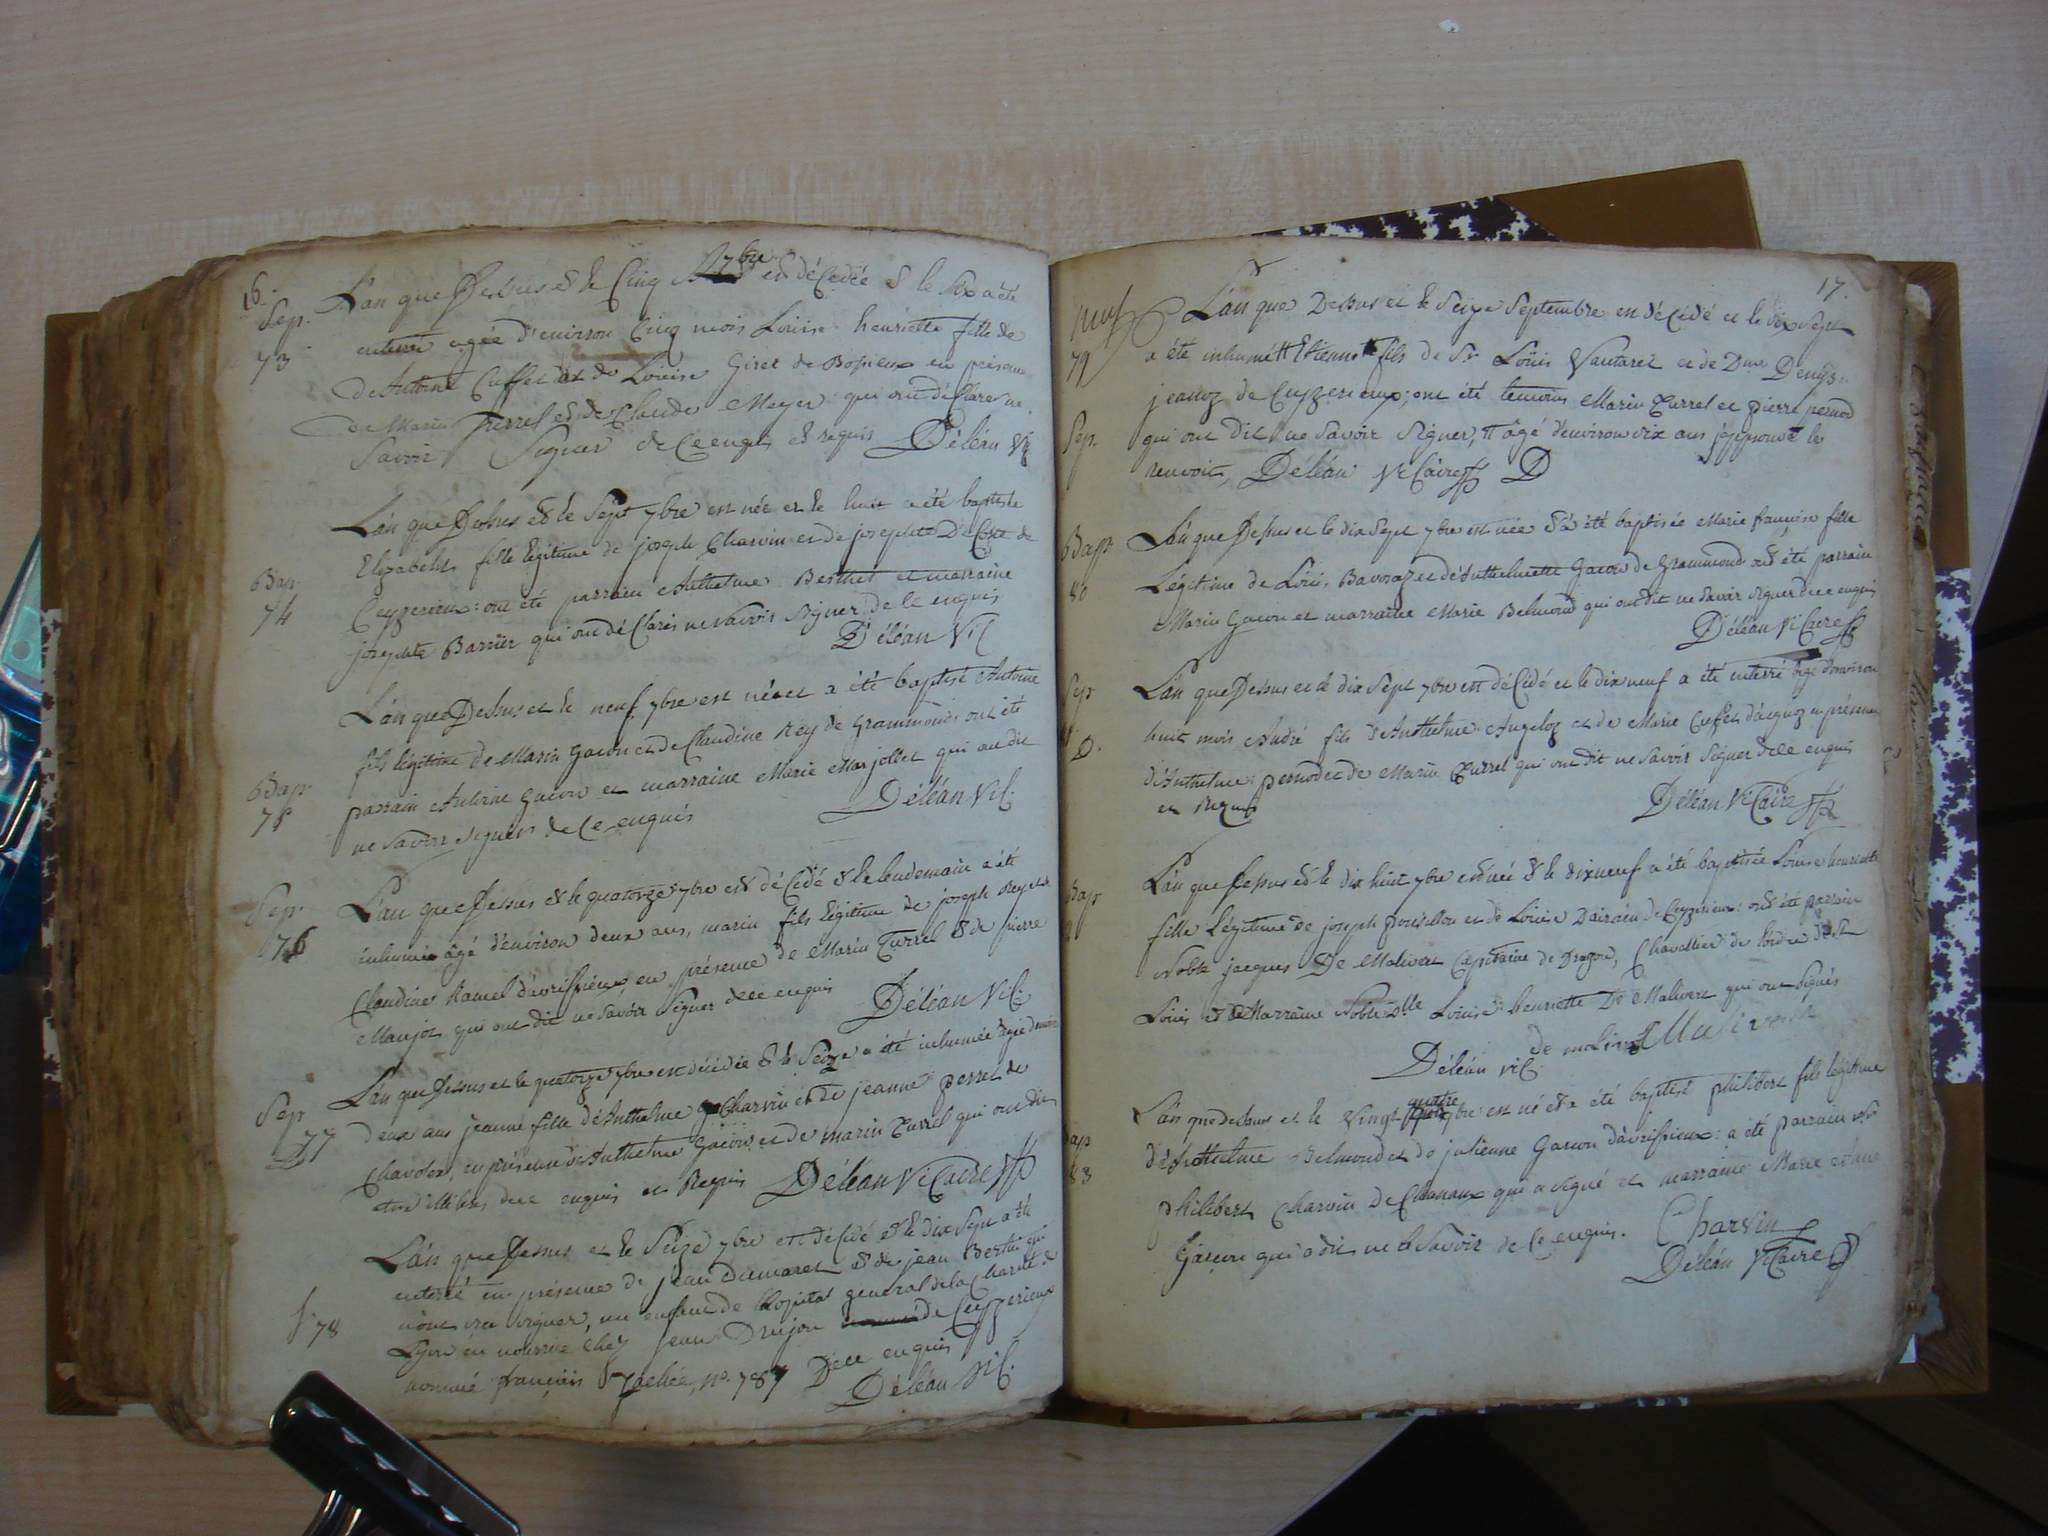 16.
Sep.
73
L'an que Dessus et le Cinq 7bre est décedée et le Six a été
enterrée agée d'environ Cinq mois Louise henriette fille de
de Antoine Cuffet et de Louise Giret de en présence
de Marin Turrel et de Claude Meyer qui ont déclaré ne
Savoir Signer de Ce enquis et requis Déléan Vic
Bap.
74
L'an que Dessus et le Sept 7bre est née et le huit a été baptisée
Elizabeth fille légitime de joseph Charvin et de josephte De Coste de
Ceyzerieux: ont été parrain Anthelme Berthet et marraine
josephte Barrier qui ont déClarés ne savoir signer de Ce enquis
Déléan Vic
Bap.
75
L'an que Dessus et le neuf 7bre est né et a été baptisé Antoine
fils légitime de Marin Gacon et de Claudine Rey de Grammond: ont été
parrain Antoine Gacon et marraine Marie Marjollet qui ont dit
ne savoir signer de Ce enquis Déléan Vic.
Sep.
76
L'an que Dessus et le quatorze 7bre est déCedé et le lendemain a été
inhumé âgé d'environ deux ans, marin fils légitime de joseph Rey et de
Claudine Ramel d'avrissieux, en présence de Marin Turrel et de pierre
Maujot qui ont dit ne savoir Signer de ce enquis Déléan Vic.
Sep
77
L'an que Dessus et le quatorze 7bre est décédée et le Seize a été inhumée agée d'environ
deux ans jeanne fille d'Anthelme Charvin et de jeanne perret de
Chavolex, en présence d'Anthelme Gacon et de marin Turrel qui ont dit
être illitérés de ce enquis et Requis Déléan ViCaire
S. 78
L'an que Dessus et le Seize 7bre est déCédé et le dix Sept a été
enterré en présence de jean dumarest et de jean Berthet qui
n'ont sçu signer, un enfant de l'hopital general de la Charité de
Lyon en nourrice chez jean Drujon de Ceyzerieux
nommé françois Zachée, no. 787 De ce enquis
Déléan Vic.
17.
neuf
79
Sep.
L'an que Dessus et le Seize Septembre est déCédé et le dix Sept
a été inhumé # Etienne fils de Sr. Loüis Vautaret et de Dme Denise
jeanoz de Ceyzerieux; ont été temoins Marin Turrel et pierre pernod
qui ont dit ne savoir Signer, # âgé d'environ dix ans j'approuve le
renvoit, Déléan ViCaire D
Bapt.
80
L'an que Dessus et le dix Sept 7bre est née et a été baptisée Marie françoise fille
Légitime de Loüis Bavoraz et d'Anthelmette Gacon de Grammond ont été parrain
Marin Gacon et marraine Marie Belmond qui ont dit ne savoir signer de ce enquis
Déléan ViCaire
Sep
D.
L'an que Dessus et le dix Sept 7bre est déCédé et le dix neuf a été enterré âgé d'environ
huit mois André fils d'Anthelme Angeloz et de Marie Cuffet d'aignoz en présence
d'Anthelme pernod et de Marin Turrel qui ont dit ne Savoir Signer de ce enquis
et Requis Déléan ViCaire
Bap
L'an que Dessus et le dix huit 7bre est née et le dix neuf a été baptisée Louise henriette
fille Légitime de joseph ponsillon et de Loüise Dairain de Ceyzerieux: ont été parrain
Noble jacques De Malivert Capitaine de Dragon, Chavallier de l'ordre de St
Louis et Marraine Noble Dlle Louise henriette De Malivert qui ont Signés
de malivert Malivert
Déléan vic.
Bap
83
L'an que dessus et le Vingt quatre 7bre est né et a été baptisé philibert fils légitime
d'Anthelme Belmond et de julienne Garcon d'avrissieux: a été parrain
philibert Charvin de Chanaux qui a signé et marraine Marie
Garçon qui a dit ne le Savoir de Ce enquis. Charvin
Déléan ViCaire